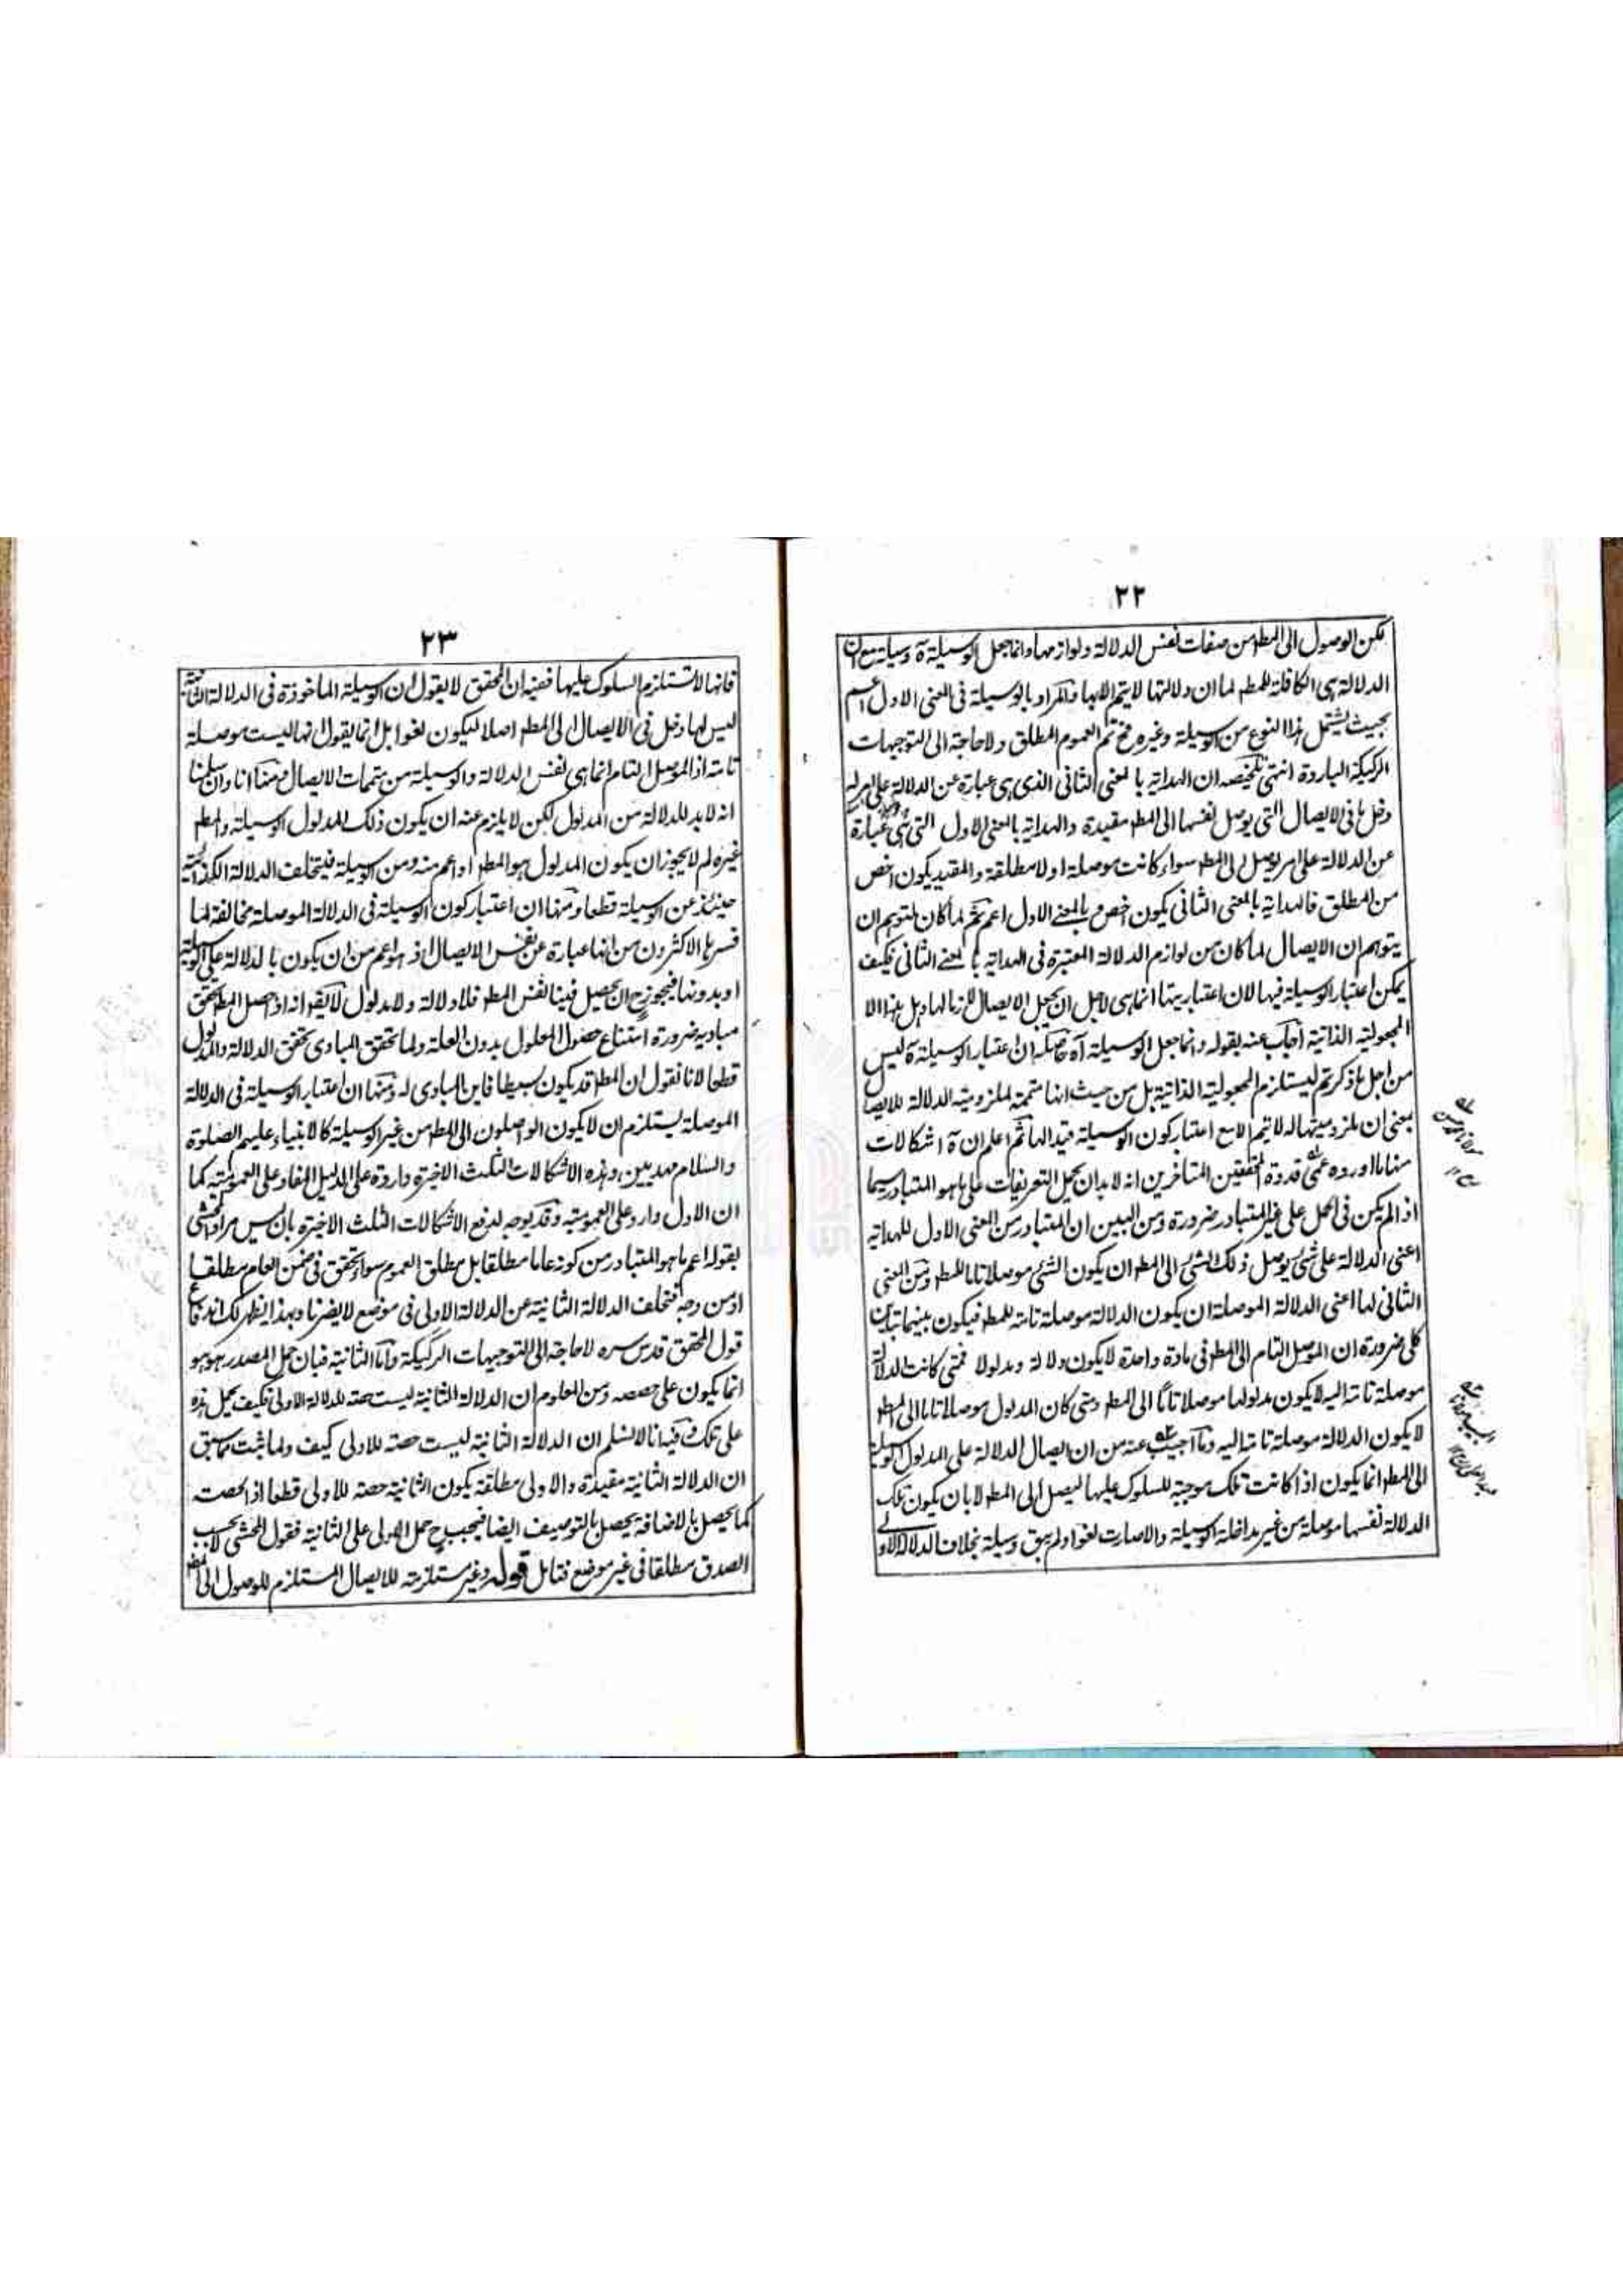 ٢٢
يمكن الوصول الى المط من صفات نفس الدلالة ولوازمها وانما جعل الوسيلة آه وسيلة مع ان
الدلالة هى الكافلة للمط لما ان دلالتها لا يتم الا بها والمراد بالوسيلة فى المعنى الاول اعم
بحيث يشتمل هذا النوع من الوسيلة وغيره فح تم العموم المطلق ولا حاجة الى التوجيهات
الركيكة الباردة انتهى تلخيصه ان الهداية بالمعنى الثانى الذى هى عبارة عن الدلالة على امر له
دخل ما فى الايصال التى يوصل نفسها الى المط مقيدة والهداية بالمعنى الاول التى هى عبارة
عن الدلالة على امر يوصل الى المط سواء كانت موصلة اولا مطلقة والمقيد يكون اخص
من المطلق فالهداية بالمعنى الثانى يكون اخص وبالمعنى الاول اعم ثم لما كان لمتوهم ان
يتوهم ان الايصال لما كان من لوازم الدلالة المعتبرة فى الهداية بالمعنى الثانى فكيف
يمكن اعتبار الوسيلة فيها لان اعتباريتها انما هى لاجل ان يجعل الايصال لازما لها وهل هذا الا
المجعولية الذاتية اجاب عنه بقوله وانما جعل الوسيلة آه حاصله ان اعتبار الوسيلة آه ليس
من اجل ما ذكرتم ليستلزم المجعولية الذاتية بل من حيث انها متممة لملزومية الدلالة للايصال
بمعنى ان ملزوميتها له لا يتم الا مع اعتبار كون الوسيلة قيد الها ثم اعلم ان آه اشكالات
منها ما اورده عمى قدوة المحققين المتاخرين انه لا بد ان يحمل التعريفات على ما هو المتبادر سيما
اذا لم يكن فى الحمل على غير المتبادر ضرورة ومن البين ان المتبادر من المعنى الاول للهداية
اعنى الدلالة على شئ يوصل ذلك الشئ الى المط ان يكون الشئ موصلا تاما للمط ومن المعنى
الثانى لها اعنى الدلالة الموصلة ان يكون الدلالة موصلة تامة للمط فيكون بينهما تباين
كلى ضرورة ان الموصل التام الى المط فى مادة واحدة لا يكون دلالة ومدلولا فمتى كانت الدلالة
موصلة تامة اليه لا يكون مدلولها موصلا تاما الى المط ومتى كان المدلول موصلا تاما الى المط
لا يكون الدلالة موصلة تامة اليه وما اجيب عنه من ان ايصال الدلالة على المدلول الوسيلة
الى المط انما يكون اذا كانت تلك موجبة للسلوك عليها ليصل الى المط لا بان يكون تلك
الدلالة نفسها موصلة من غير مداخلة الوسيلة والا صارت لغوا ولم يبق وسيلة بخلاف الدلالة الاولى
٢٣
فانها لا تستلزم السلوك عليها ففيه ان المحقق لا يقول ان الوسيلة الماخوذة فى الدلالة الثانية
ليس لها دخل فى الايصال الى المط اصلا ليكون لغوا بل انما يقول انها ليست موصلة
تامة اذ الموصل التام انما هى نفس الدلالة والوسيلة من متممات الايصال ومنها انا وان سلمنا
انه لا بد للدلالة من المدلول لكن لا يلزم عنه ان يكون ذلك المدلول الوسيلة والمط
غيره لم لا يجوز ان يكون المدلول هو المط او اعم منه ومن الوسيلة فيتخلف الدلالة الكذائية
حينئذ عن الوسيلة قطعا ومنها ان اعتبار كون الوسيلة فى الدلالة الموصلة مخالفة لما
فسرها الاكثرون من انها عبارة عن نفس الايصال اذ هو اعم من ان يكون بالدلالة على الوسيلة
او بدونها فيجوز ح ان يحصل فينا نفس المط فلا دلالة ولا مدلول لا يقو انه اذ احصل المط تحقق
مباديه ضرورة امتناع حصول المعلول بدون العلة ولما تحقق المبادى تحقق الدلالة والمدلول
قطعا لانا نقول ان المط قد يكون بسيطا فاين المبادى له ومنها ان اعتبار الوسيلة فى الدلالة
الموصلة يستلزم ان لا يكون الواصلون الى المط من غير الوسيلة كالانبياء عليهم الصلوة
والسلام مهديين وهذه الاشكالات الثلث الاخيرة واردة على الدليل المفاد على العمومية كما
ان الاول وارد على العمومية وقد يوجه لدفع الاشكالات الثلث الاخيرة بان ليس مراد المحشى
بقوله اعم ما هو المتبادر من كونه عاما مطلقا بل مطلق العموم سواء تحقق فى ضمن العام مطلقا
او من وجه فتخلف الدلالة الثانية عن الدلالة الاولى فى موضع لا يضرنا وبهذا يظهر لك اندفاع
قول المحقق قدس سره لا حاجة الى التوجيهات الركيكة واما الثانية فبان حمل المصدر هو هو
انما يكون على حصصه ومن المعلوم ان الدلالة الثانية ليست حصة للدلالة الاولى فكيف يحمل هذه
على تلك وفيه انا لا نسلم ان الدلالة الثانية ليست حصة للاولى كيف ولما ثبت مما سبق
ان الدلالة الثانية مقيدة والاولى مطلقة يكون الثانية حصة للاولى قطعا اذ الحصة
كما يحصل بالاضافة يحصل بالتوصيف ايضا فيجب ح حمل الاولى على الثانية فقول المحشى لا بحسب
الصدق مطلقا فى غير موضع فتامل قوله وغير مستلزمة للايصال المستلزم للوصول الى المط